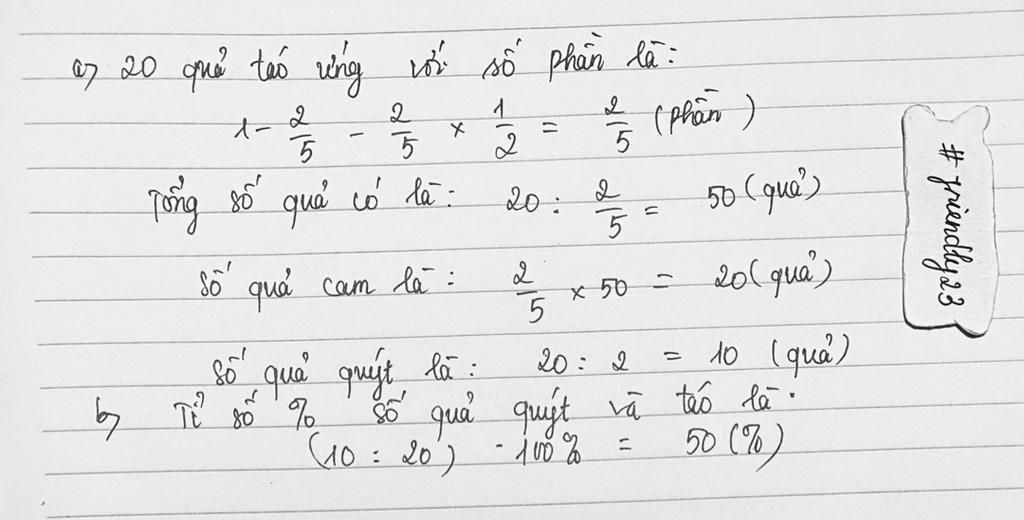 a) 20 quả táo ứng với số phần là:
1 - 2/5 - 2/5 × 1/2 = 2/5 (phần)
Tổng số quả có là: 20 : 2/5 = 50 (quả)
Số quả cam là: 2/5 × 50 = 20 (quả)
Số quả quýt là: 20 : 2 = 10 (quả)
b) Tỉ số % số quả quýt và táo là.
(10 : 20) . 100% = 50 (%)
# friendly23